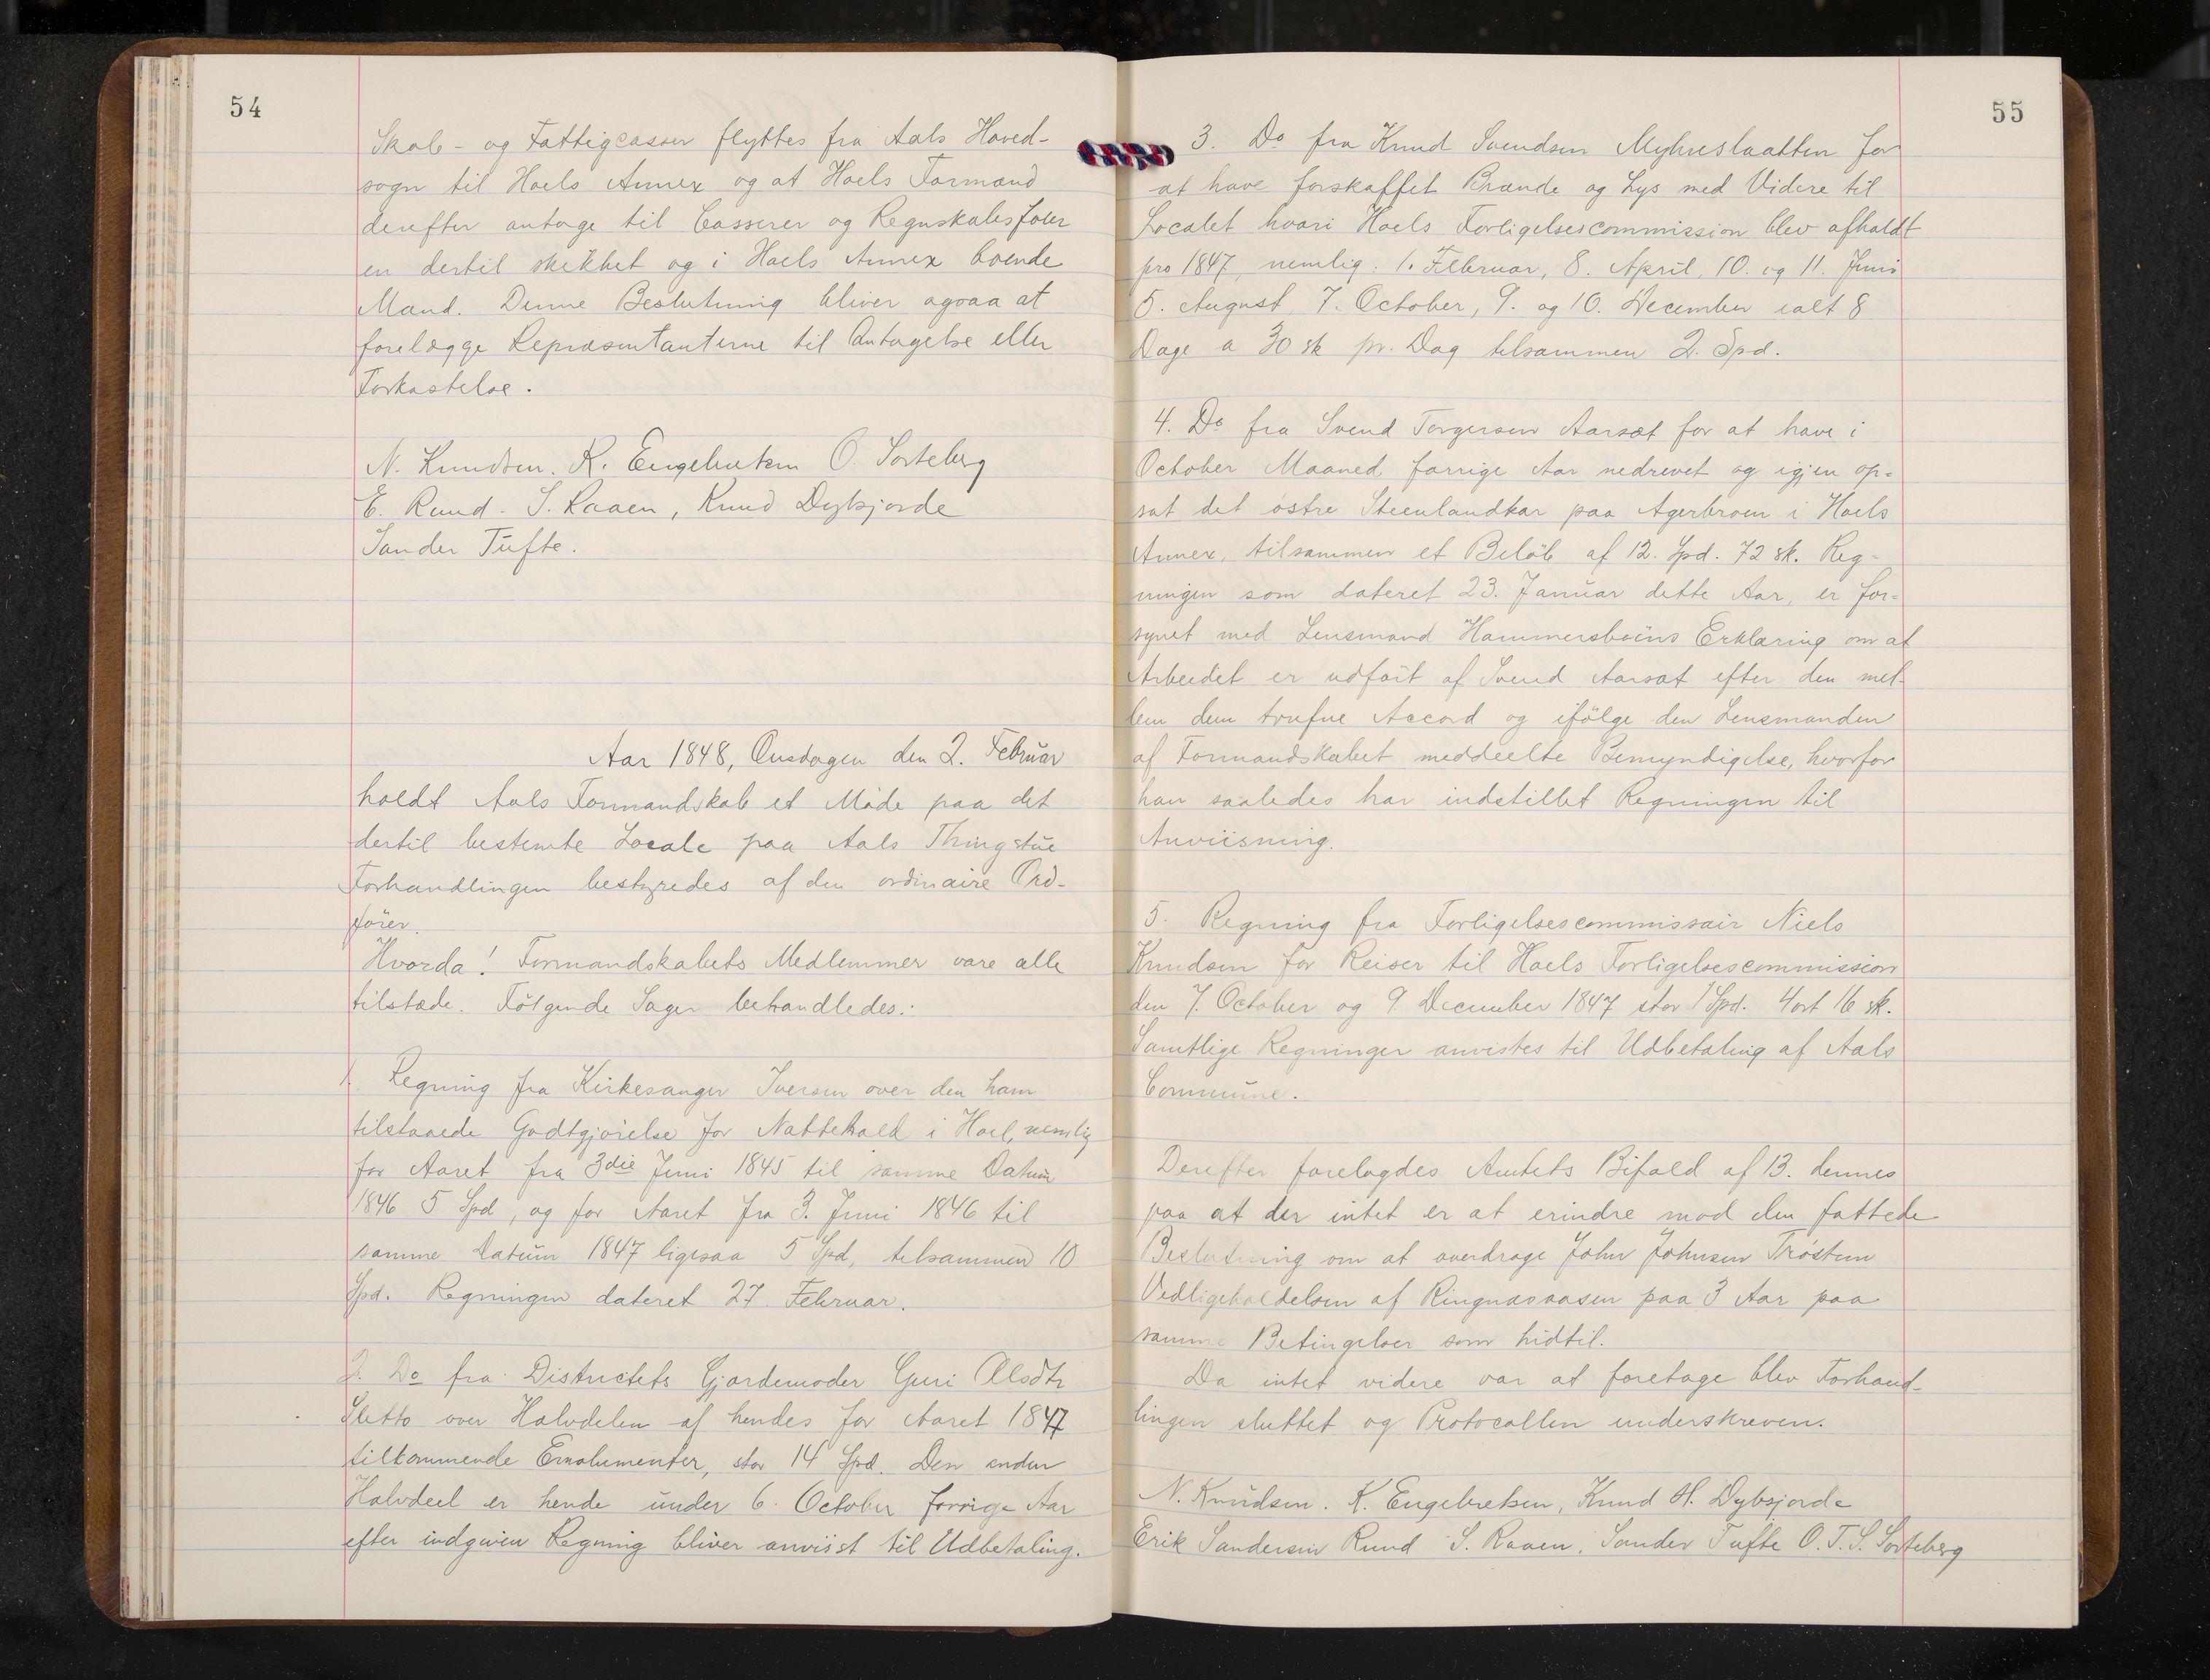 54
Skole- og Fattigcassen flyttes fra Aals Hoved-
sogn til Hoels Annex og at Hoels Formænd
derefter antage til Casserer og Regnskabsfører
en dertil skikket og i Hoels Annex boende
Mand. Denne Beslutning bliver ogsaa at
forelægge Repræsentanterne til Antagelse eller
Forkastelse.
N. Knudsen. K. Engebretsen O. Sorteberg
E. Rund. S. Raaen, Knud Dybsjorde
Sander Tufte.
Aar 1848, Onsdagen den 2. Februar
holdt Aals Formandskab et Møde paa det
dertil bestemte Locale paa Aals Thingstue
Forhandlingen bestyredes af den ordinaire Ord-
fører.
Hvorda! Formandskabets Medlemmer vare alle
tilstæde. Følgende Sager behandledes:
1. Regning fra Kirkesanger Iversen over den ham
tilstaaede Godtgjørelse for Nattehold i Hoel, nemlig
for Aaret fra 3die Juni 1845 til samme Datum
1846 5 Spd, og for Aaret fra 3. Juni 1846 til
samme Datum 1847 ligesaa 5 Spd, tilsammen 10
Spd. Regningen dateret 27. Februar.
2. Do fra Districtets Gjordemoder Guri Olsdtr
Sletto over Halvdelen af hendes for Aaret 1847
tilkommende Emolumenter, stor 14 Spd. Den anden
Halvdeel er hende under 6. October forrige Aar
efter indgiven Regning bliver anviist til Udbetaling.
55
3. Do fra Knud Svendsen Myhreslaatten for
at have forskaffet Brænde og Lys med Videre til
Localet hvori Hoels Forligelsescommission blev afholdt
pro 1847, nemlig: 1. Februar, 8. April, 10. og 11. Juni
5. August, 7. October, 9. og 10. December ialt 8
Dage a 30 sk pr. Dag tilsammen 2. Spd.
4. Do fra Svend Torgersen Aarsæt for at have i
October Maaned forrige Aar nedrevet og igjen op-
sat det østre Steenlandkar paa Agerbroen i Hoels
Annex, tilsammen et Beløb af 12. Spd. 72 sk. Reg-
ningen som dateret 23. Januar dette Aar, er for-
synet med Lensmand Hammersbøens Erklæring om at
Arbeidet er udført af Svend Aarsæt efter den mel-
lem dem trufne Accord og ifølge den Lensmanden
af Formandskabet meddeelte Bemyndigelse, hvorfor
han saaledes har indstillet Regningen til
Anviisning.
5. Regning fra Forligelsescommissair Niels
Knudsen for Reiser til Hoels Forligelsescommission
den 7. October og 9. December 1847 stor 1 Spd. 4 ort 16 sk.
Samtlige Regninger anvistes til Udbetaling af Aals
Commune.
Derefter forelagdes Amtets Bifald af 13. dennes
paa at der intet er at erindre mod den fattede
Beslutning om at overdrage John Johnsen Trøstem
Vedligeholdelsen af Ringnæsaasen paa 3 Aar paa
samme Betingelser som hidtil.
Da intet videre var at foretage blev Forhand-
lingen sluttet og Protocollen underskreven.
N. Knudsen. K. Engebretsen, Knud H. Dybsjorde
Erik Sandersen Rund S. Raaen. Sander Tufte O. T. S. Sorteberg